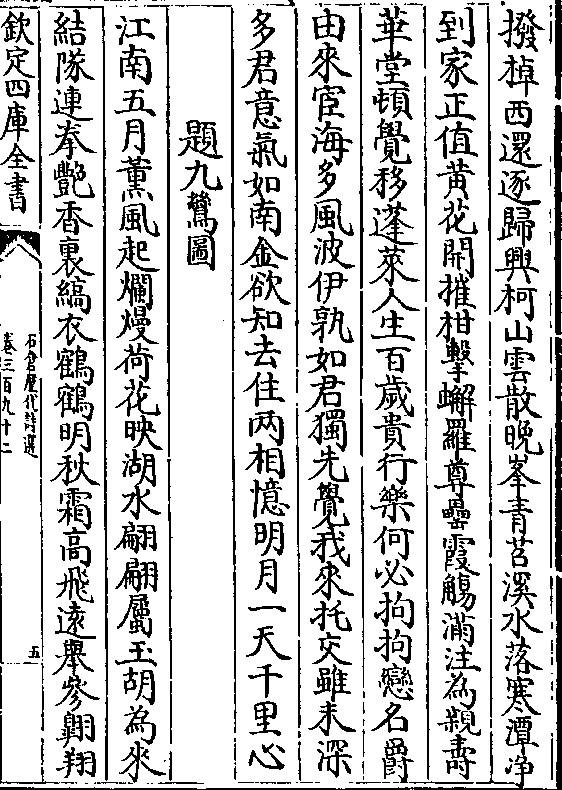 撥棹西還逐歸興柯山雲散晚峯青苕溪水落寒潭净
到家正值黄花開摧柑擊蠏羅尊罍霞觴滿注為親壽
華堂頓覺移蓬萊人生百歲貴行樂何必拘拘戀名爵
由來宦海多風波伊孰如君獨先覺我來托交雖未深
多君意氣如南金欲知去住两相憶明月一天千里心
題九鷺圖
江南五月薰風起爛熳荷花映湖水翩翩屬玉胡為來
結隊連拳艷香裏縞衣鶴鶴明秋霜高飛遠舉參翺翔
欽定四庫全書
石倉歷代詩選
卷三百九十二
五